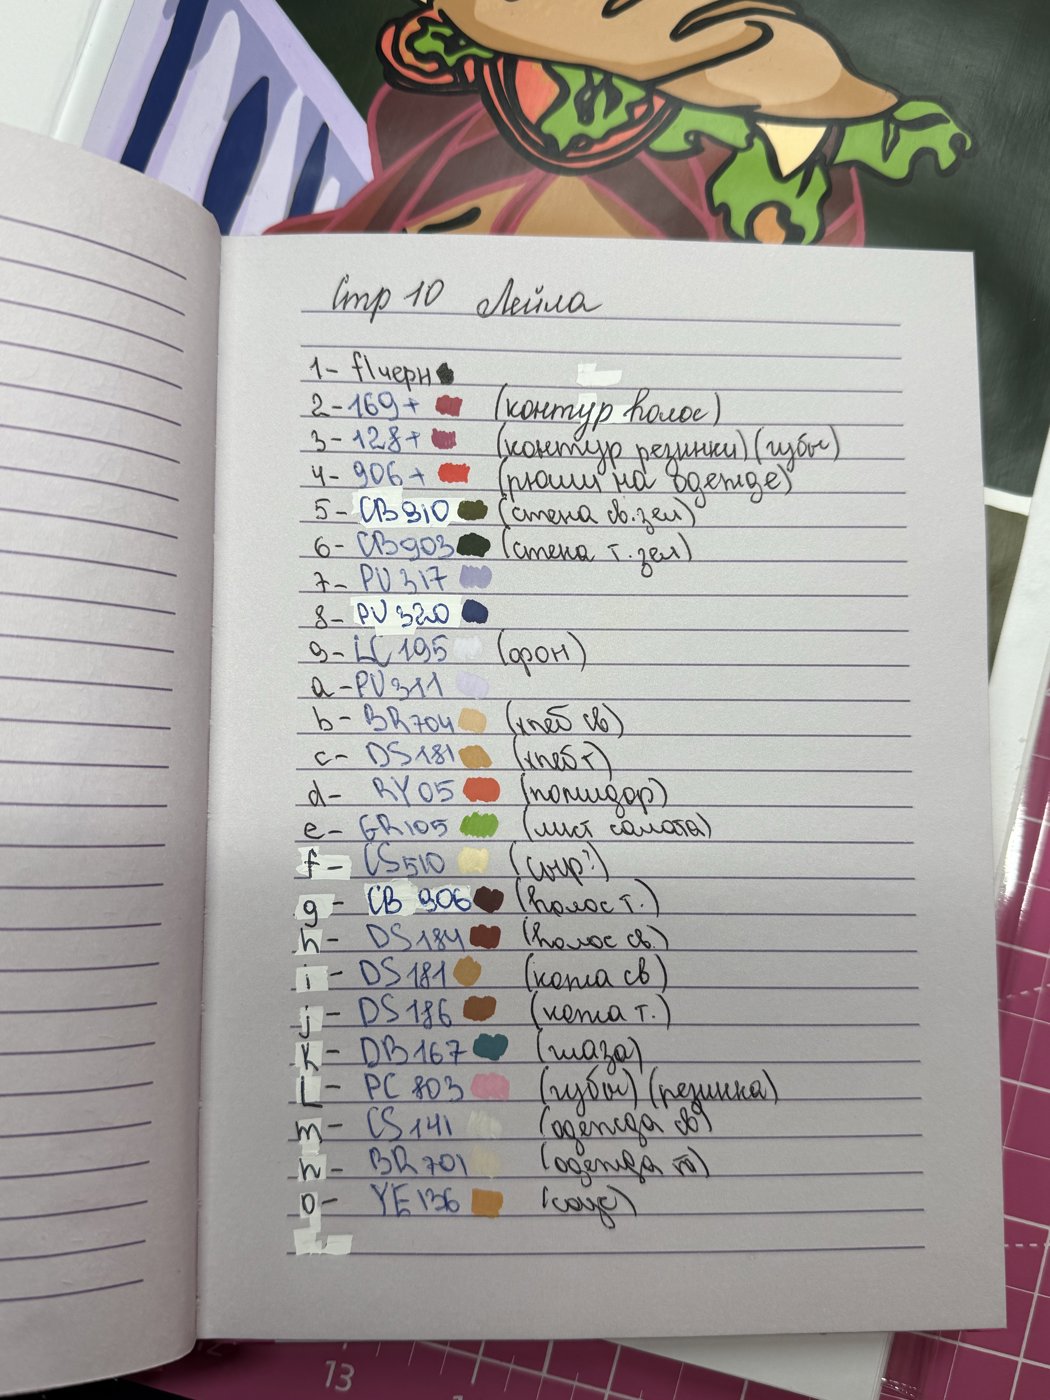 Стр 10 Лейла
1- fl черн
2- 169+ (контур волос)
3- 128+ (контур резинки) (губы)
4- 906+ (рюши на одежде)
5- CB910 (стена св. зел)
6- CB903 (стена т. зел)
7- PV317
8- PV320
9- LC195 (фон)
a- PV311
b- BR704 (хлеб св)
c- DS181 (хлеб т)
d- RY05 (помидор)
e- GR105 (лист салата)
f- CS510 (сыр?)
g- CB906 (волос т.)
h- DS184 (волос св.)
i- DS181 (кожа св)
j- DS186 (кожа т.)
k- DB167 (глаза)
L- PC803 (губы) (резинка)
m- CS141 (одежда св)
n- BR701 (одежда т)
o- YE136 (соус)
13